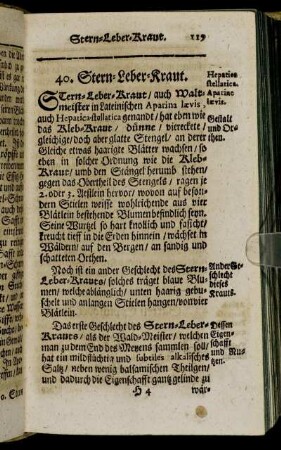 Stern-Leber-Kraut. 119
40. Stern-Leber-Kraut.
STern-Leber-Kraut/ auch Wald-
meister in Lateinischen Aparina lævis,
auch Hepatica-stellatica genandt/ hat eben wie
das Kleb-Kraut/ dünne/ viereckete/
gleichige/ doch aber glatte Stengel/ an derer
Gleiche etwas haarigte Blätter wachsen/ so
eben in solcher Ordnung wie die Kleb-
Kraut/ umb den Stängel herumb stehen/
gegen das Obertheil des Stengels/ ragen je
2. oder 3. Aestlein hervor/ woran auf beson-
dern Stielen weisse wohlriechende aus vier
Blätlein bestehende Blumen befindlich seyn.
Seine Wurtzel so hart knöllich und fasicht/
kreucht tieff in die Erden hinnein/ wächset in
Wäldern auf den Bergen/ an sandig und
schatteten Orthen.
Noch ist ein ander Geschlecht des Stern-
Leber-Krautes/ solches träget blaue Blu-
men/ welche ablänglich/ unten haarig gebü-
schele und anlangen Stielen hangen/ von vier
Blätlein.
Das erste Geschlecht des Stern-Leber-
Krautes/ als der Wald-Meister/ welchen
man zu dem End des Meyens sammlen soll/
hat ein mildflüchtig und subtiles alkalisches
Saltz/ neben wenig balsamischen Theilgen/
und dadurch die Eigenschafft gantz gelinde zu
H 4 wär-
Hepatica
stellarica.
Aparine
lævis.
Gestalt
und Or-
then.
Ander Ge-
schlecht
dieses
Krauts.
Dessen
Eigen-
schafft
und Nu-
tzen.